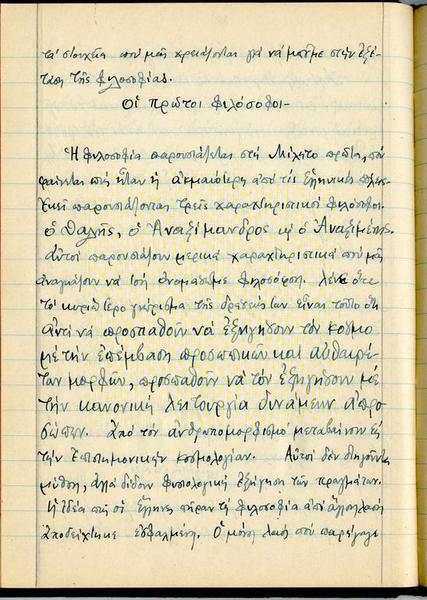 τὰ στοιχεῖα ποὺ μᾶς χρειάζονται γιὰ νὰ μποῦμε στὴν ἐξέ-
ταση τῆς φιλοσοφίας.
Οἱ πρῶτοι φιλόσοφοι-
Ἡ φιλοσοφία παρουσιάζεται στὴ Μίλητο πρῶτα, ποὺ
φαίνεται πὼς ἦταν ἡ ἀκμαιότερη ἀπὸ τὶς ἑλληνικὲς πόλεις.
Ἐκεῖ παρουσιάζονται τρεῖς χαρακτηριστικοὶ φιλόσοφοι.
ὁ Θαλῆς, ὁ Ἀναξίμανδρος κι ὁ Ἀναξιμένης.
αὐτοὶ παρουσιάζουν μερικὰ χαρακτηριστικὰ ποὺ μᾶς
ἀναγκάζουν νὰ τοὺς ὀνομάσουμε φιλοσόφους. λένε ὅτι
τὸ κυριώτερο γνώρισμα τῆς σκέψεώς των εἶναι τοῦτο ὅτι
ἀντὶ νὰ προσπαθοῦν νὰ ἐξηγήσουν τὸν κόσμο
μὲ τὴν ἐπέμβαση προσωπικῶν καὶ αὐθαιρέ-
των μορφῶν, προσπαθοῦν νὰ τὸν ἐξηγήσουν μὲ
τὴν κανονικὴ λειτουργία δυνάμεων ἀπρο-
σώπων. Ἀπὸ τὸν ἀνθρωπομορφισμὸ μεταβαίνουν εἰς
τὴν ἐπιστημονικὴν κοσμολογίαν. Αὐτοὶ δὲν διηγοῦνται
μύθους, ἀλλὰ δίδουν φυσιολογικὴ ἐξήγηση τῶν πραγμάτων.
Ἡ ἰδέα πὼς οἱ Ἕλληνες πῆραν τὴ φιλοσοφία ἀπὸ ἄλλους λαοὺς
ἀποδείχτηκε ἐσφαλμένη. Ὁ μόνος λαὸς ποὺ παρήγαγε